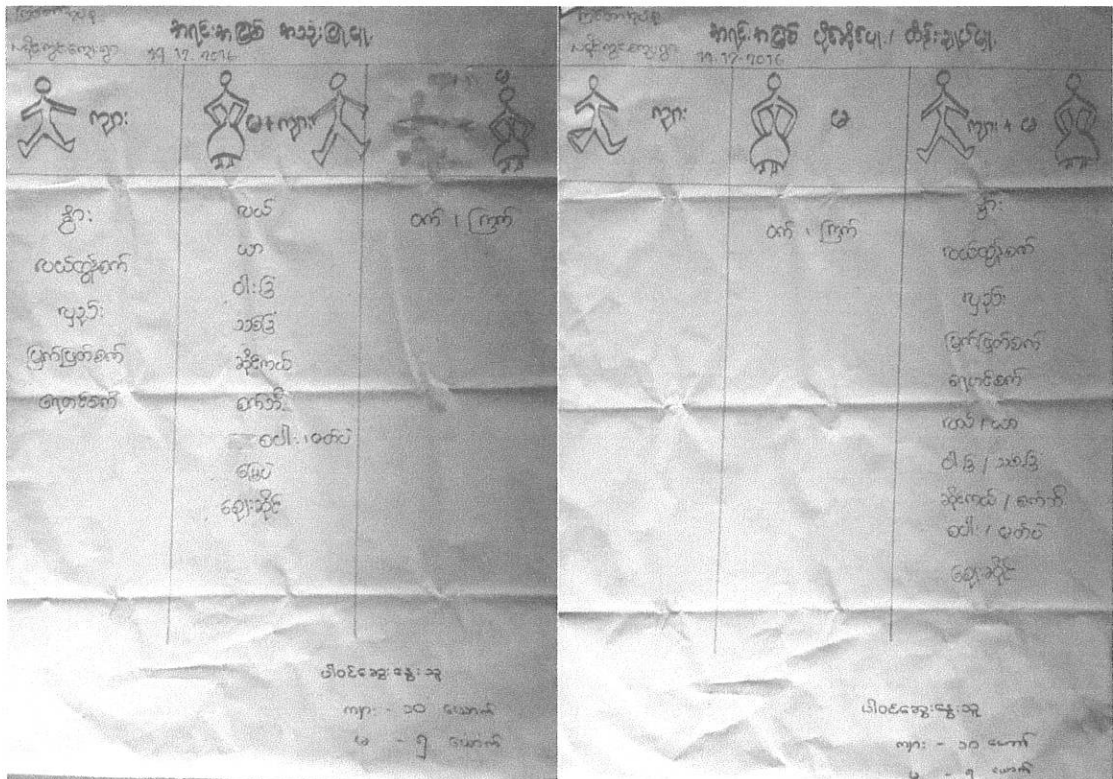 အရင်းအမြစ် အသုံးပြုမှု
ကျား
မ + ကျား
မ
နွား
လယ်ထွန်စက်
လှည်း
မြက်ဖြတ်စက်
ရေတင်စက်
လယ်
ယာ
ဝါးခြံ
သစ်ခြံ
ဆိုင်ကယ်
စက်ဘီး
စပါး ၊ မတ်ပဲ
မြေပဲ
ဈေးဆိုင်
ဝက် ၊ ကြက်
ပါဝင်ဆွေးနွေးသူ
ကျား - ၁၀ ယောက်
မ - ၅ ယောက်
အရင်းအမြစ် ပိုင်ဆိုင်မှု / ထိန်းချုပ်မှု
ကျား
မ
ကျား + မ
ဝက် ၊ ကြက်
နွား
လယ်ထွန်စက်
လှည်း
မြက်ဖြတ်စက်
ရေတင်စက်
လယ် / ယာ
ဝါးခြံ / သစ်ခြံ
ဆိုင်ကယ် / စက်ဘီး
စပါး / မတ်ပဲ
ဈေးဆိုင်
ပါဝင်ဆွေးနွေးသူ
ကျား - ၁၀ ယောက်